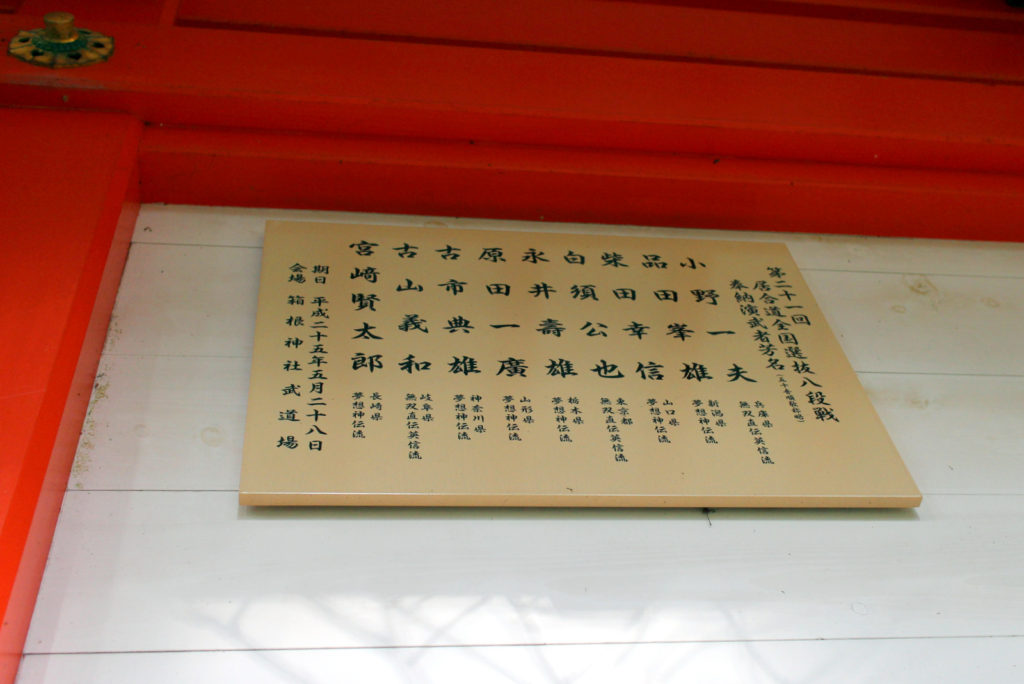 第二十一回
居合道全国選抜八段戦
奉納演武者芳名（五十音順敬称略）
小野一夫
兵庫県
無双直伝英信流
品田峯雄
新潟県
夢想神伝流
柴田幸信
山口県
夢想神伝流
白須公也
東京都
無双直伝英信流
永井壽雄
栃木県
夢想神伝流
原田一廣
山形県
夢想神伝流
古市典雄
神奈川県
夢想神伝流
古山義和
岐阜県
無双直伝英信流
宮﨑賢太郎
長崎県
夢想神伝流
期日 平成二十五年五月二十八日
会場 箱根神社武道場